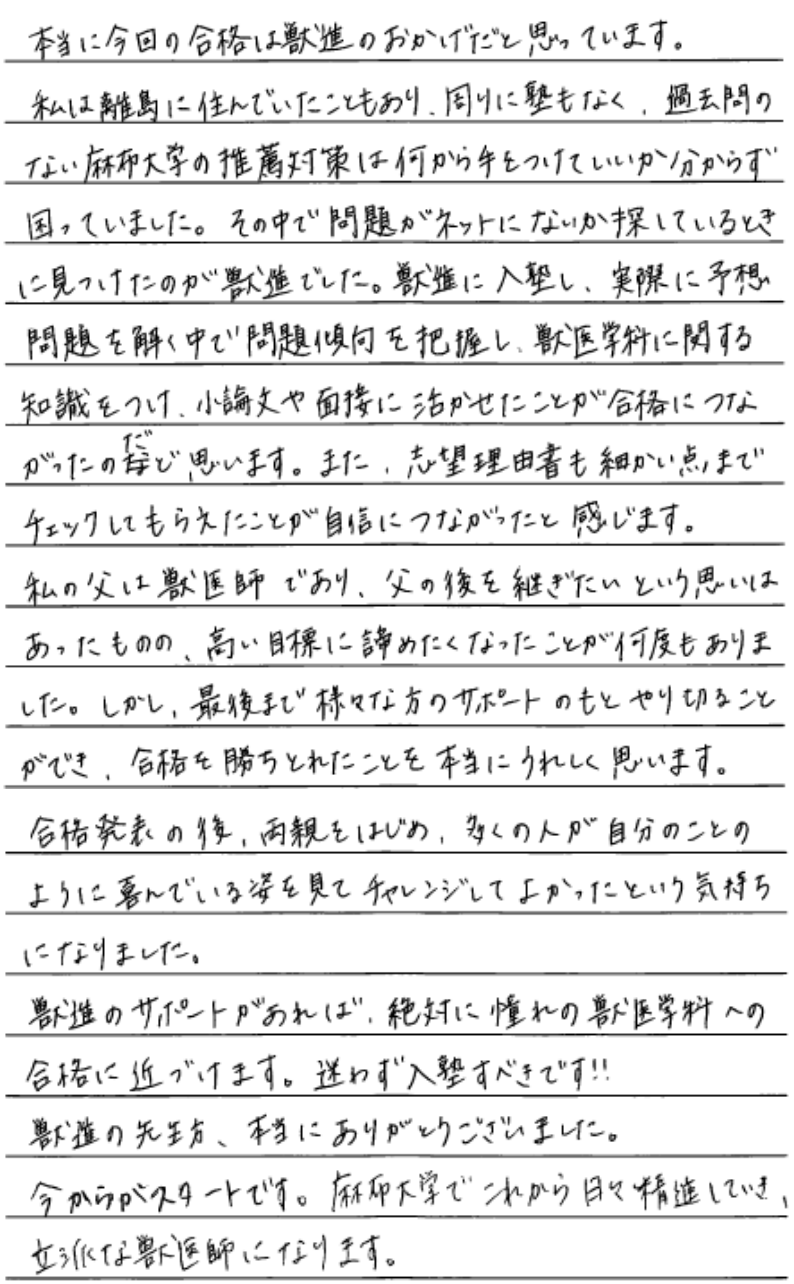 本当に今回の合格は獣進のおかげだと思っています。
私は離島に住んでいたこともあり、周りに塾もなく、過去問の
ない麻布大学の推薦対策は何から手をつけていいか分からず
困っていました。その中で問題がネットにないか探しているとき
に見つけたのが獣進でした。獣進に入塾し、実際に予想
問題を解く中で問題傾向を把握し、獣医学科に関する
知識をつけ、小論文や面接に活かせたことが合格につな
がったのだと思います。また、志望理由書も細かい点まで
チェックしてもらえたことが自信につながったと感じます。
私の父は獣医師であり、父の後を継ぎたいという思いは
あったものの、高い目標に諦めたくなったことが何度もありま
した。しかし、最後まで様々な方のサポートのもとやり切ること
ができ、合格を勝ちとれたことを本当にうれしく思います。
合格発表の後、両親をはじめ、多くの人が自分のことの
ように喜んでいる姿を見てチャレンジしてよかったという気持ち
になりました。
獣進のサポートがあれば、絶対に憧れの獣医学科への
合格に近づけます。迷わず入塾すべきです!!
獣進の先生方、本当にありがとうございました。
今からがスタートです。麻布大学でこれから日々精進していき、
立派な獣医師になります。